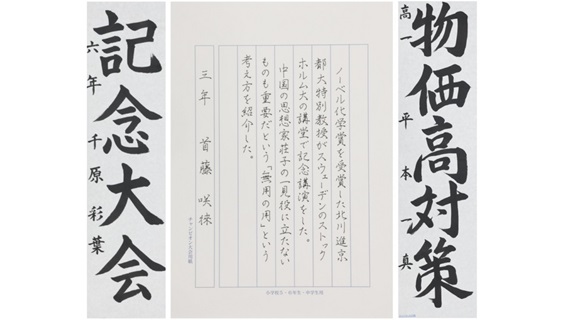 物価高対策
高一 平本一真
ノーベル化学賞を受賞した北川進京
都大特別教授がスウェーデンのストック
ホルム大の講堂で記念講演をした。
中国の思想家荘子の一見役に立たない
ものも重要だという「無用の用」という
考え方を紹介した。
三年 首藤 咲
記念大会
六年 千原彩葉